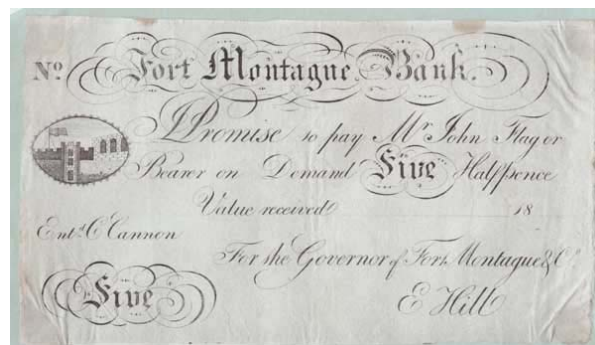 No. Fort Montague Bank.
I Promise to pay Mr. John Flag or
Bearer on Demand Five Halfpence
Value received 18
Entd. C Cannon
For the Governor of Fort Montague & Co.
Five
E Hill